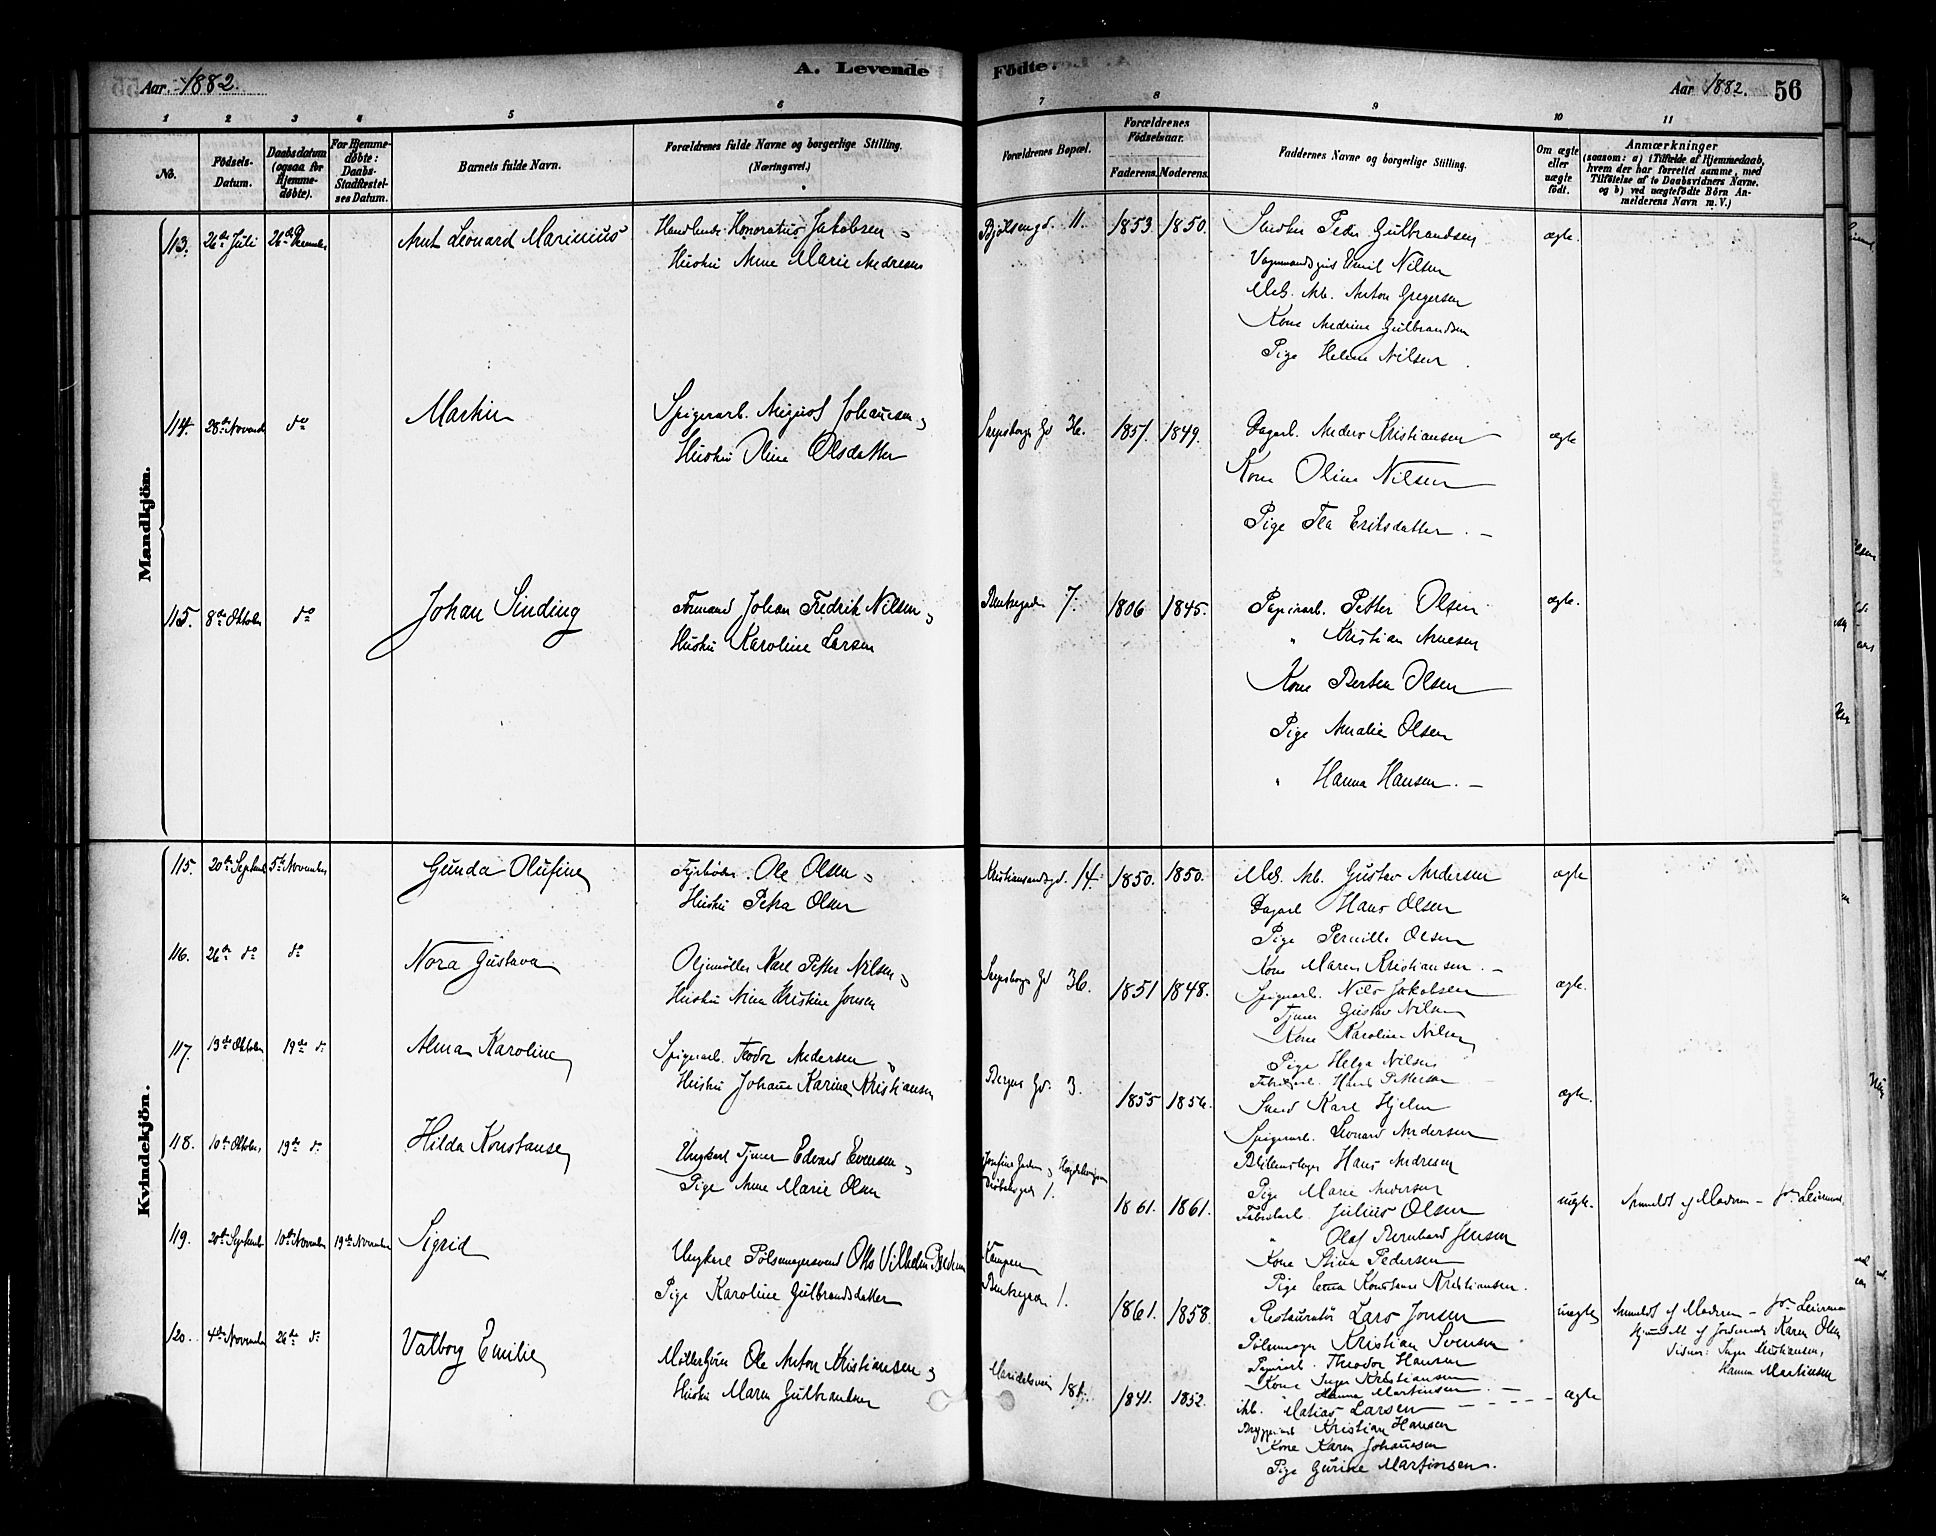 Aar 1882.
A. Levende
Födte
Aar 1882.
56
1 2 3 4 5 6 7 8 9 10 11
No.
Födsels-
Datum.
Daabsdatum
(ogsaa for
Hjemme-
döbte).
For Hjemme-
döbte:
Daabs-
Stadfæstel-
ses Datum.
Barnets fulde Navn.
Forældrenes fulde Navne og borgerlige Stilling.
(Næringsvei.)
Forældrenes Bopæl.
Forældrenes
Födselsaar.
Faderens.
Moderens.
Faddernes Navne og borgerlige Stilling.
Om ægte
eller
uægte
födt.
Anmærkninger
(saasom: a) i Tilfælde af Hjemmedaab,
hvem der har forrettet samme, med
Tilföielse af to Daabsvidners Navne,
og b) ved uægtefödte Börn An-
melderens Navn m. V.)
Mandkjön.
113. 26de Juli
Arnt Leonard Marinius
Honoratus Jakobsen
Hustru Anne Marie Andresen
11. 1853. 1850.
Peder Gulbrandsen
ægte.
Emil Nilsen
Mek. Arb. Anton Gregersen
Kone Andrine Gulbrandsen
Pige Helene Nilsen
114. 28de Novemb do
Martin
Spigerarb. August Johansen
Hustru Oline Olsdatter
Sarpsborg Gd 36. 1851. 1849.
Dagarb. Anders Kristiansen
ægte
Kone Oline Nilsen
Pige Tea Eriksdatter
115. 8de Oktober do
Johan Sinding
Formand Johan Fredrik Nilsen
Hustru Karoline Larsen
7. 1806 1845.
Papirarb. Petter Olsen
ægte.
" Kristian Arnesen
Kone Bertea Olsen
Pige Amalie Olsen
" Hanna Hansen.
Kvindekjön.
115. 20de Septemb 5te November
Gunda Olufine
Fyrböder Ole Olsen
Hustru Petra Olsen
Kristiansandsgd. 14. 1850. 1850.
Mek. Arb. Gustav Andersen
ægte
Dagarb Hans Olsen
Pige Pernille Olsen
Kone Maren Kristiansen.
116. 26de do do
Nora Gustava
Oljemöller Karl Petter Nilsen
Hustru Nina Kristine Jonsen
Sarpsborg Gd 36. 1851 1848.
Spigerarb. Nils Jakobsen
ægte.
Tjener Gustav Nilsen
Kone Karoline Nilsen
Pige Helga Nilsen
117. 13de Oktober 19de do
Alma Karoline
Spigerarb. Teodor Andersen
Hustru Johanne Karine Kristiansen
Bergs Gd. 3. 1855 1856.
Fabrikarb. Hans Pettersen
ægte.
Karl Hjelm
Spigerarb. Leonard Andersen
Hans Andresen
Pige Marie Andersen
118. 10de Oktober 19de do
Hilda Konstanse
Ungkarl Tjener Edvard Evensen
Pige Anne Marie Olsen
1. 1861. 1861.
Fabrikarb. Julius Olsen
uægte.
Anmeldt af Moderen
" Olaf Bernhard Jensen
Kone Stina Pedersen
Pige Konstanse Kristiansen.
119. 20de Septemb 10de November 19de November
Sigrid
Ungkarl Pölsemagersvend Otto Vilhelm
Pige Karoline Gulbrandsdatter
Kampen
1. 1861. 1858.
Restauratör Lars Jonsen
uægte
Anmeldt af Moderen
Hjemdöbt af Jordemoder Karen Olsen
Vidner: Inger Kristiansen,
Hanna Martinsen
Pölsemager Kristian Svensen
Papirarb. Theodor Hansen
Kone Inger Kristiansen
" Hanna Martinsen
120. 4de November 26de do
Valborg Emilie
Möllerhjön Ole Anton Kristiansen
Hustru Maren Gulbrandsen
Maridalsveien 181. 1841. 1852.
Arb. Matias Larsen
ægte
Kristian Hansen
Kone Karen Johansen
Pige Gurine Martinsen.